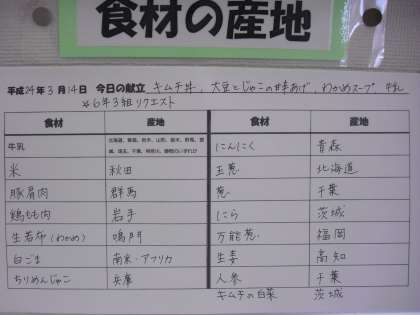 食材の産地
平成24年3月14日 今日の献立 キムチ丼、大豆とじゃこの甘辛あげ、わかめスープ 牛乳
*6年3組リクエスト
食材 産地 食材 産地
牛乳 にんにく 青森
米 秋田 玉葱 北海道
豚肩肉 群馬 葱 千葉
鶏もも肉 岩手 にら 茨城
生若布(わかめ) 鳴門 万能葱 福岡
白ごま 南米・アフリカ 生姜 高知
ちりめんじゃこ 兵庫 人参 千葉
キムチの白菜 茨城